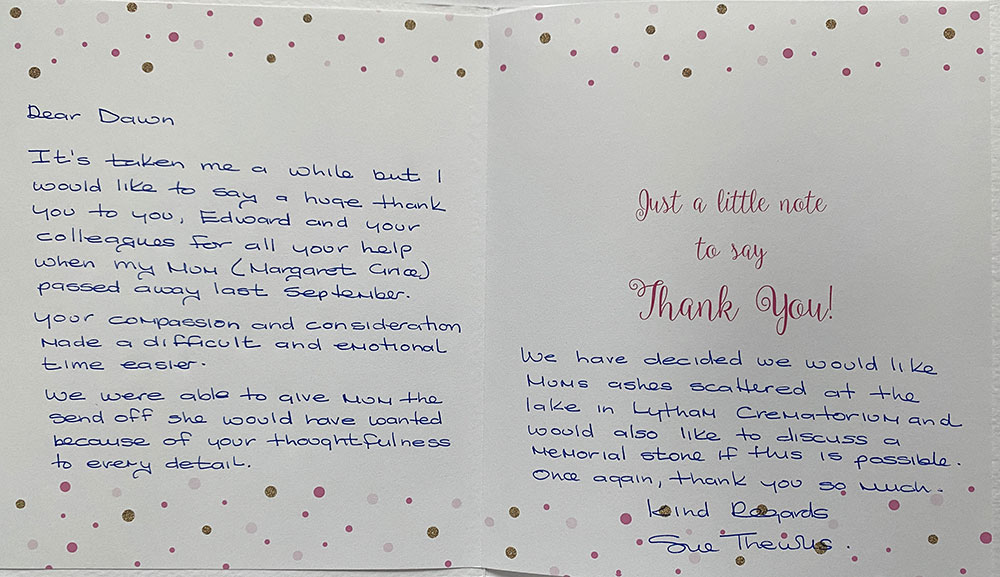 Dear Dawn
It's taken me a while but I
would like to say a huge thank
you to you, Edward and your
colleagues for all your help
when my Mum (Margaret
passed away last September.
Your compassion and consideration
made a difficult and emotional
time easier.
We were able to give Mum the
send off she would have wanted
because of your thoughtfulness
to every detail.
Just a little note
to say
Thank You!
We have decided we would like
Mums ashes scattered at the
lake in Lytham Crematorium and
would also like to discuss a
memorial stone if this is possible.
Once again, thank you so much.
Kind Regards
Sue